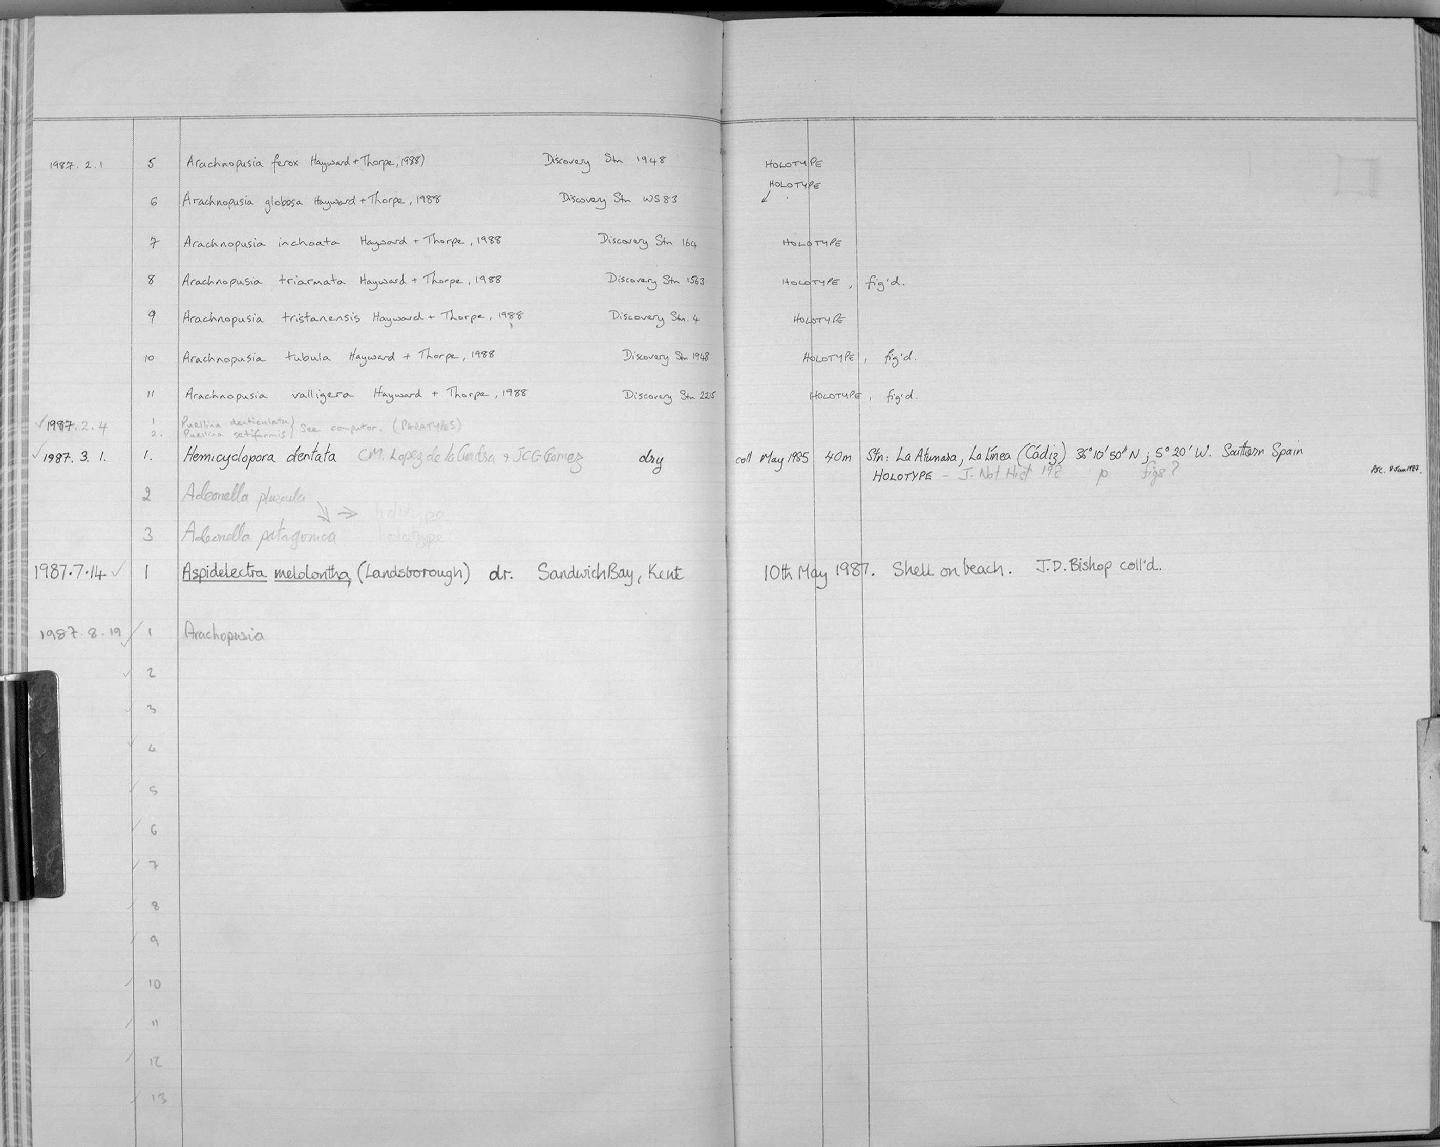 1987.2.1 5 Arachnopusia ferox Hayward + Thorpe, 1988) Discovery Stn 1948 HOLOTYPE
HOLOTYPE
6 Arachnopusia globosa Hayward + Thorpe, 1988 Discovery Stn WS83
7 Arachnopusia inchoata Hayward + Thorpe, 1988 Discovery Stn 164 HOLOTYPE
8 Arachnopusia triarmata Hayward + Thorpe, 1988 Discovery Stn 1563 HOLOTYPE, fig'd.
9 Arachnopusia tristanensis Hayward + Thorpe, 1988 Discovery Stn. 4 HOLOTYPE
10 Arachnopusia tubula Hayward + Thorpe, 1988 Discovery Stn 1948 HOLOTYPE, fig'd.
11 Arachnopusia valligera Hayward + Thorpe, 1988 Discovery Stn 225 HOLOTYPE, fig'd.
1987.2.4 1 Puellina denticulata) See computor. (PARATYPES)
2. Puellina setiformis)
1987.3.1. 1. Hemicyclopora dentata C.M. Lopez de la Cuadra & JCG Gomez dry coll May 1985 40m Stn: La Atunara, La Línea (Cádiz) 36°10'50" N; 5°20' W. Southern Spain
HOLOTYPE - J. Nat Hist 198 p figs?
2 Adeonella
3 Adeonella patagonica holotype
1987.7.14 1 Aspidelectra melolontha (Landsborough) dr. Sandwich Bay, Kent 10th May 1987. Shell on beach. J.D. Bishop coll'd.
1987.8.19 1 Arachopusia
2
3
4
5
6
7
8
9
10
11
12
13